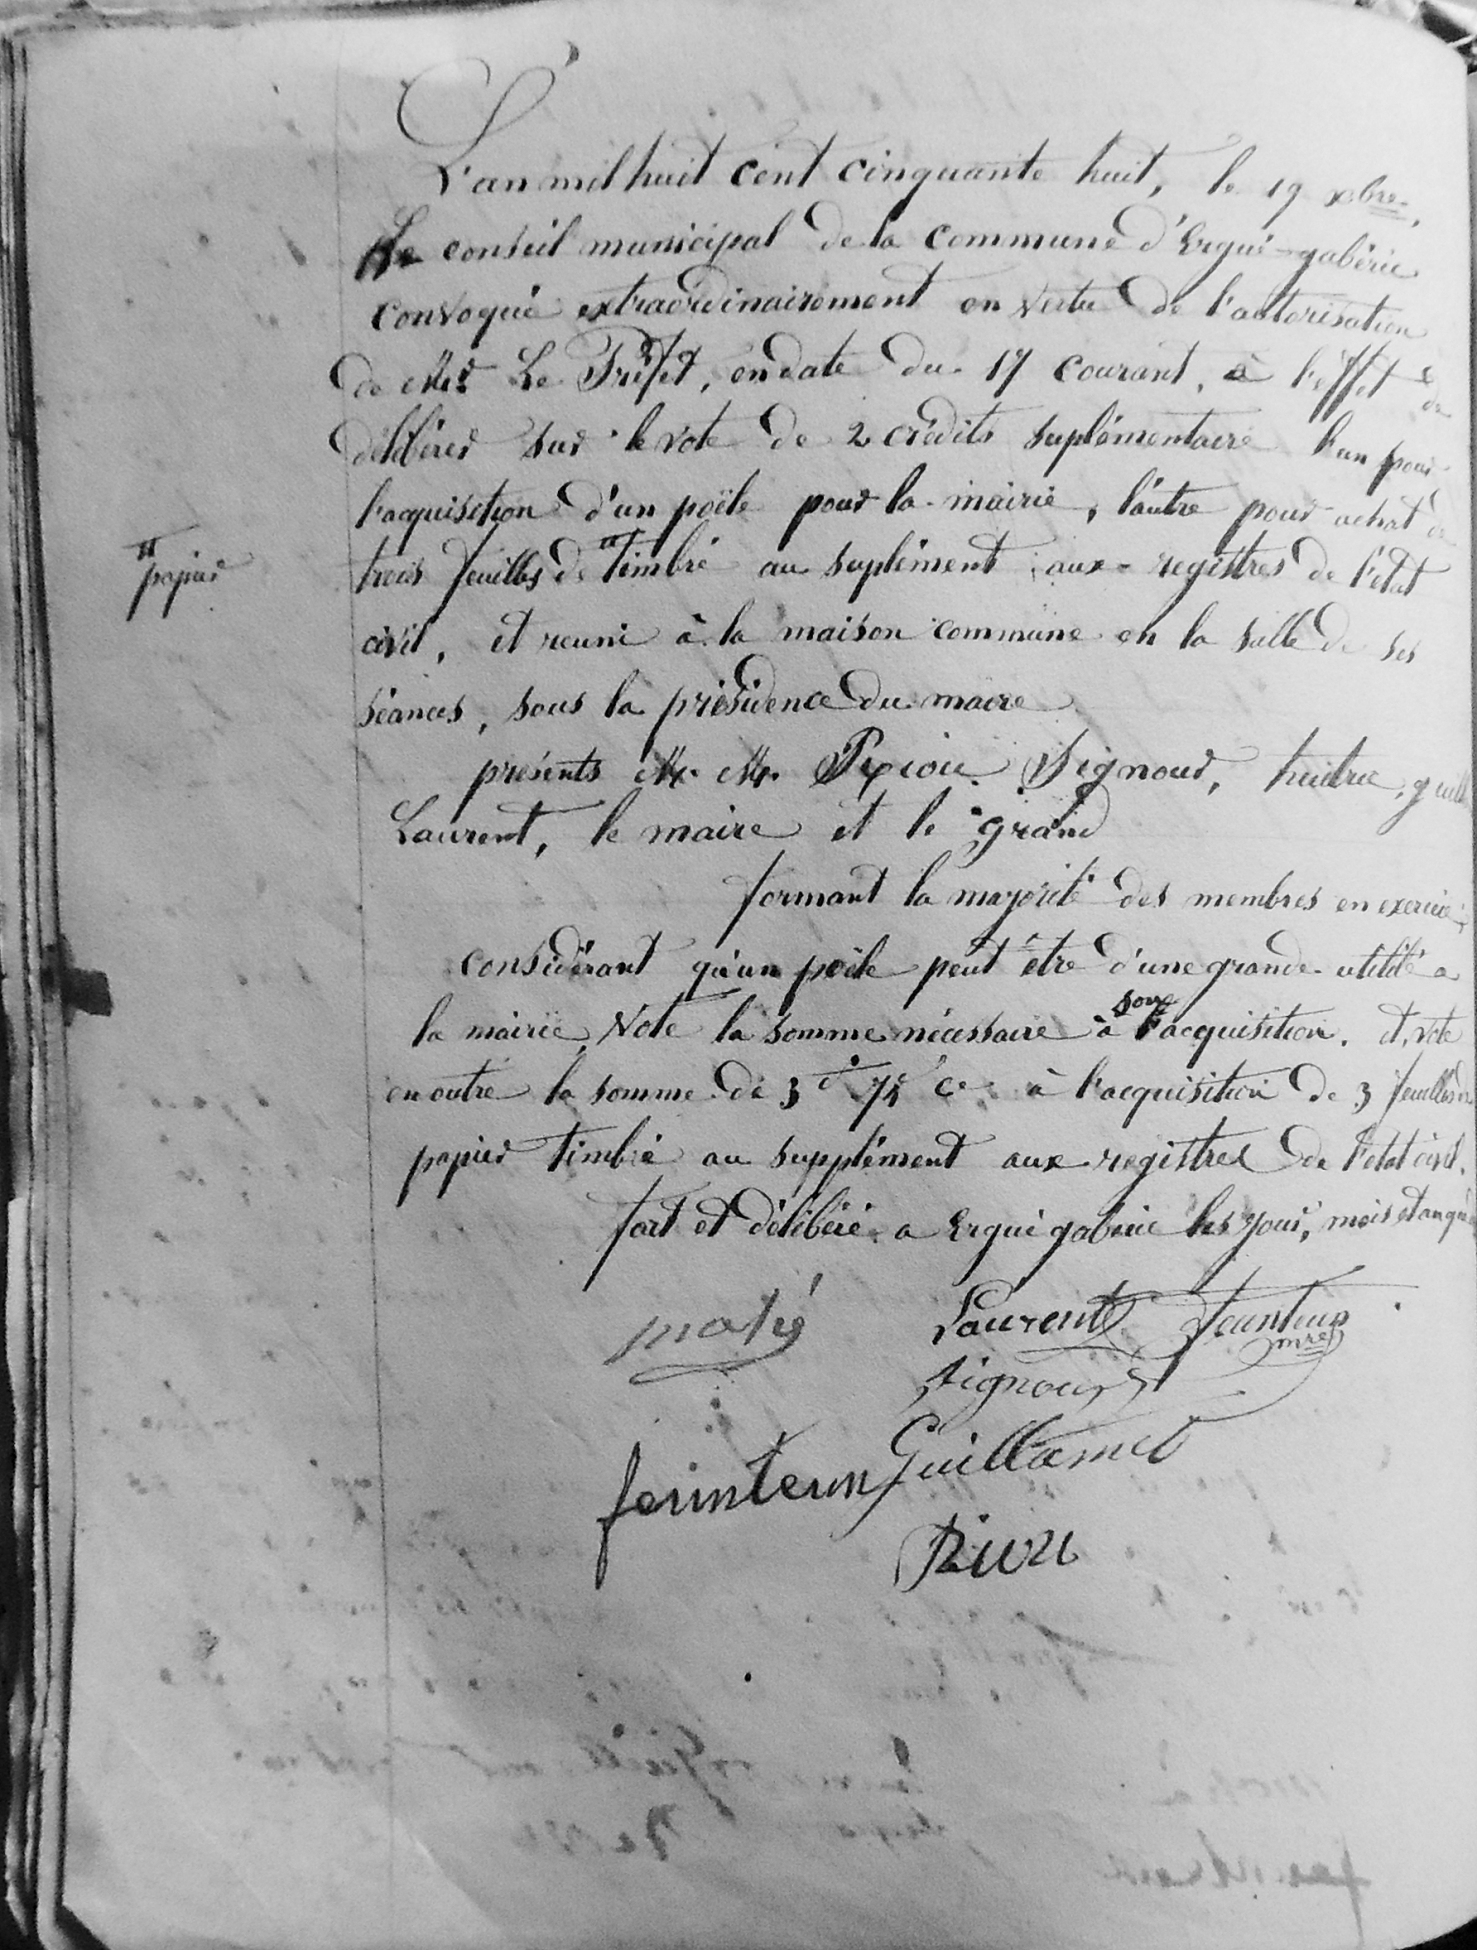 L'an mil huit cent cinquante huit, le 19 xbre,
Le conseil municipal de la commune d'Ergué-gabéric
convoqué extraordinairement en vertu de l'autorisation
de Mr. Le Préfet, en date du 17 courant, à l'effet de
délibérer sur le vote de 2 crédits suplémentaire l'un pour
l'acquisition d'un poële pour la mairie, l'autre pour achat de
trois feuilles de " timbré au suplément aux registres de l'état
" papier
civil, et reuni à la maison commune en la salle de ses
séances, sous la présidence du maire
présents M. M. Signour,
Laurent, le maire et le grand
formant la majorité des membres en exercice,
considérant qu'un poële peut être d'une grande utilité a
la mairie, Vote la somme nécessaire à son acquisition. et vote
en outre la somme de 3 f 75 c. à l'acquisition de 3 feuilles de
papier timbré au supplément aux registres de l'état civil.
fait et délibéré a Ergué gabéric les jour, mois et an que
Laurent feunteun
mre
Signour
feunteun Guillamet